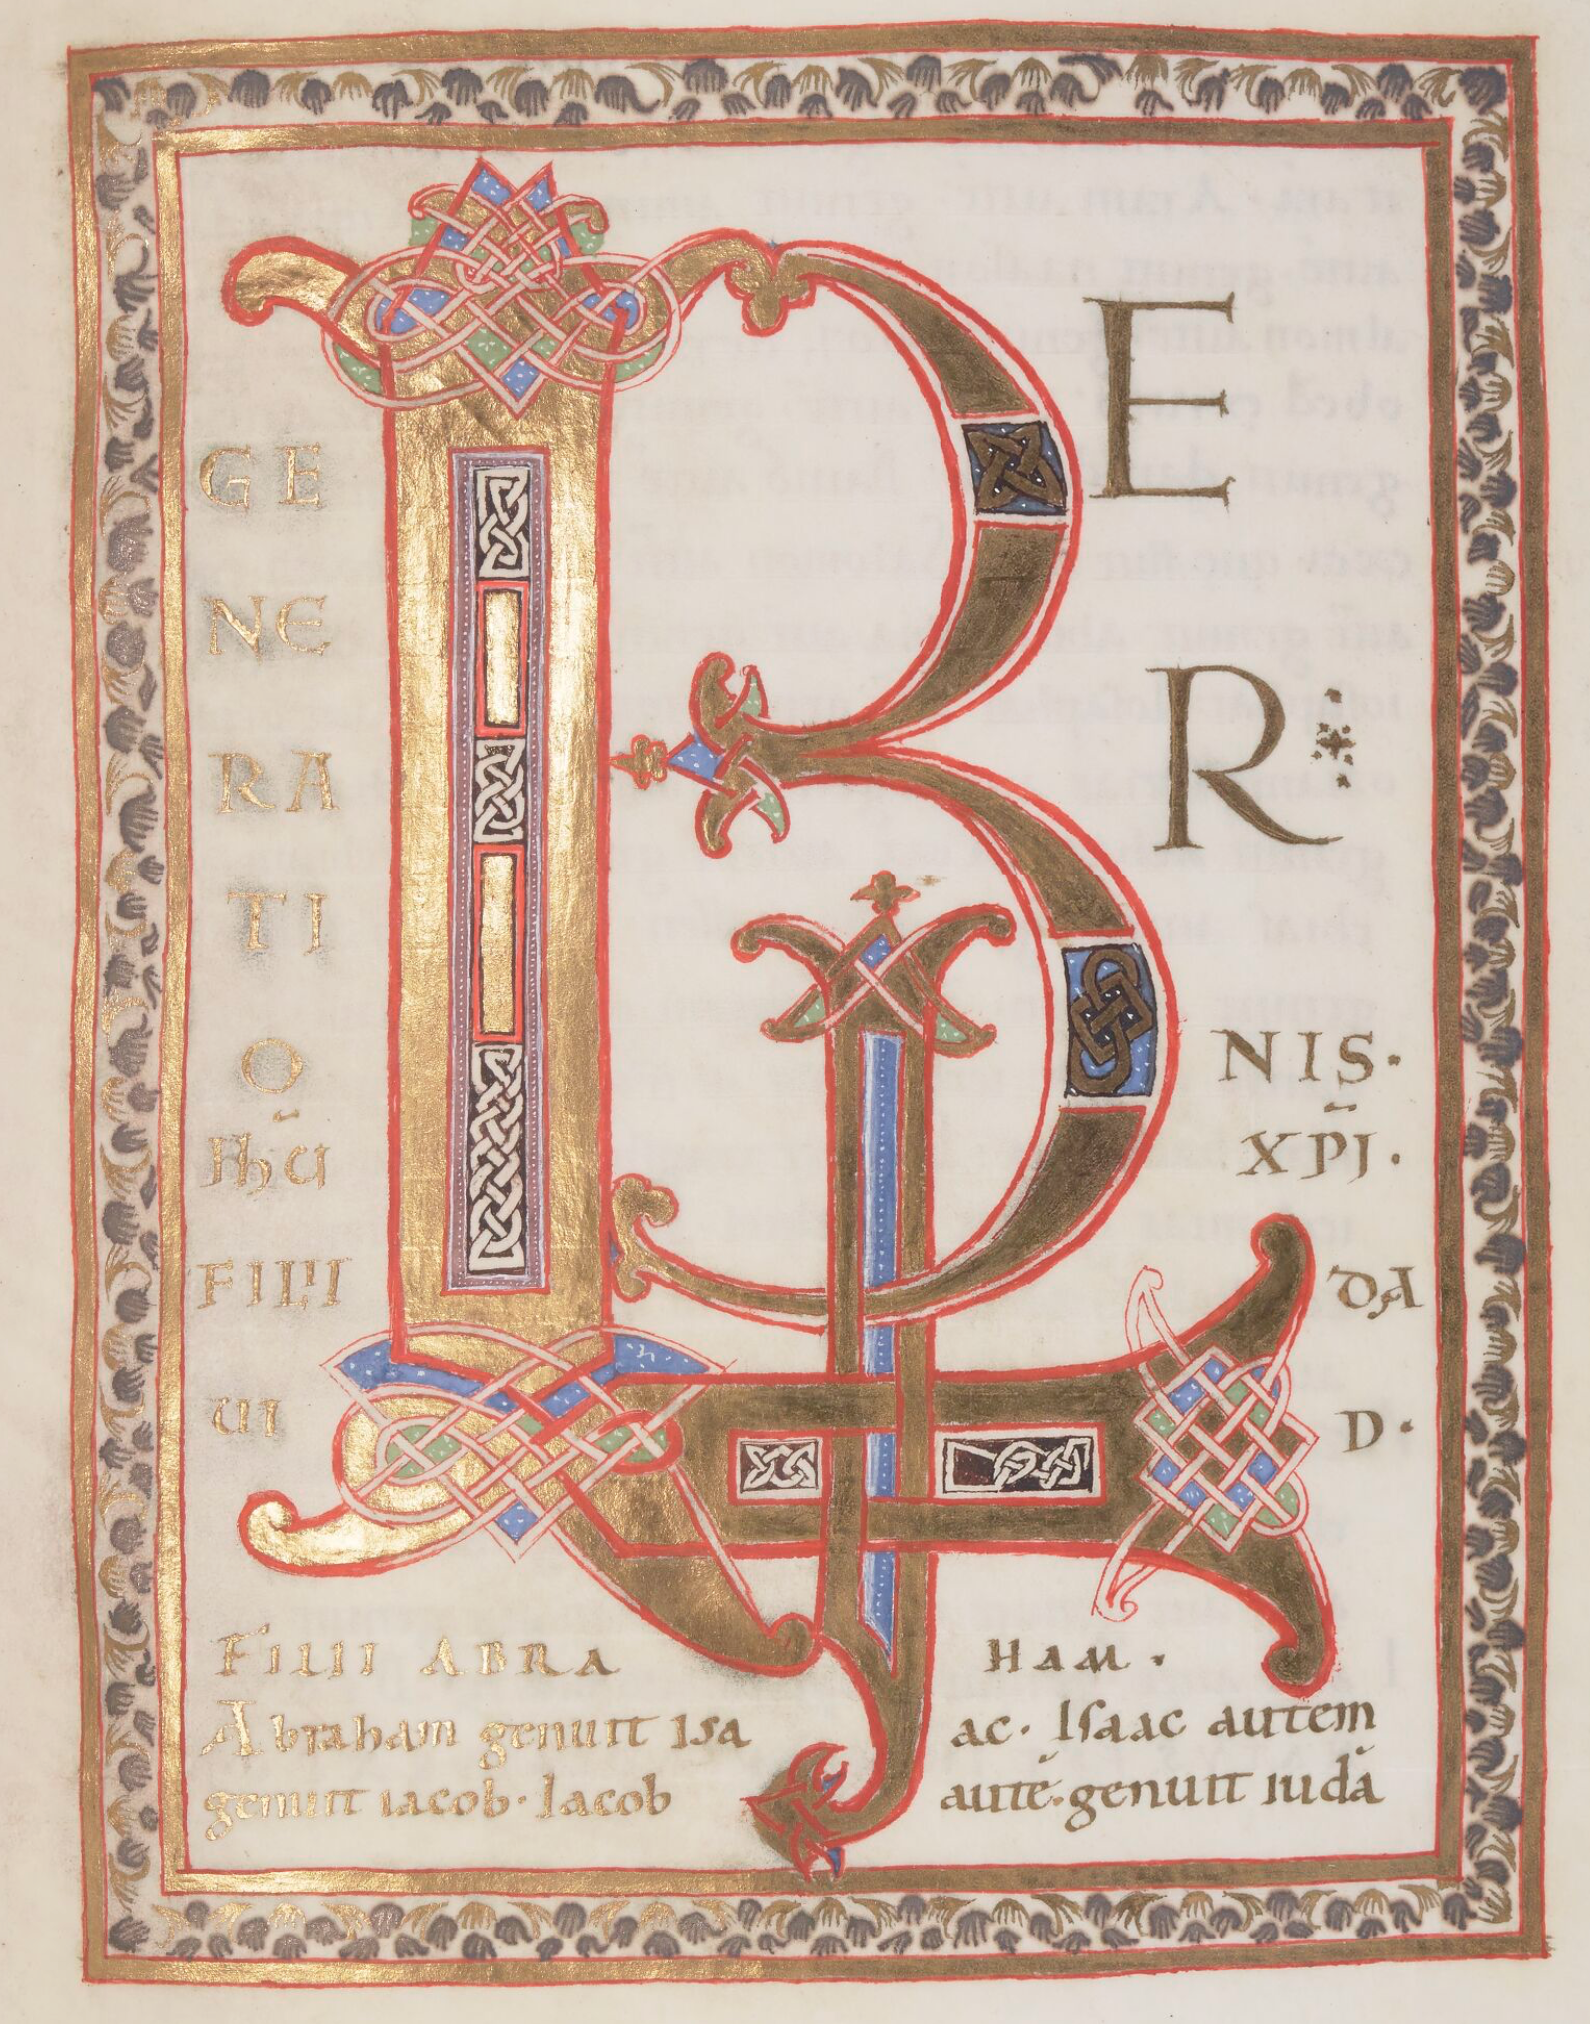 LIB
E
R
GE
NE
RA
TI
O NIS·
IHŪ XP̄I·
FILII DA
UI D·
FILII ABRA HAM·
Abraham genuit Isa ac· Isaac autem
genuit iacob· Iacob autē· genuit iudā